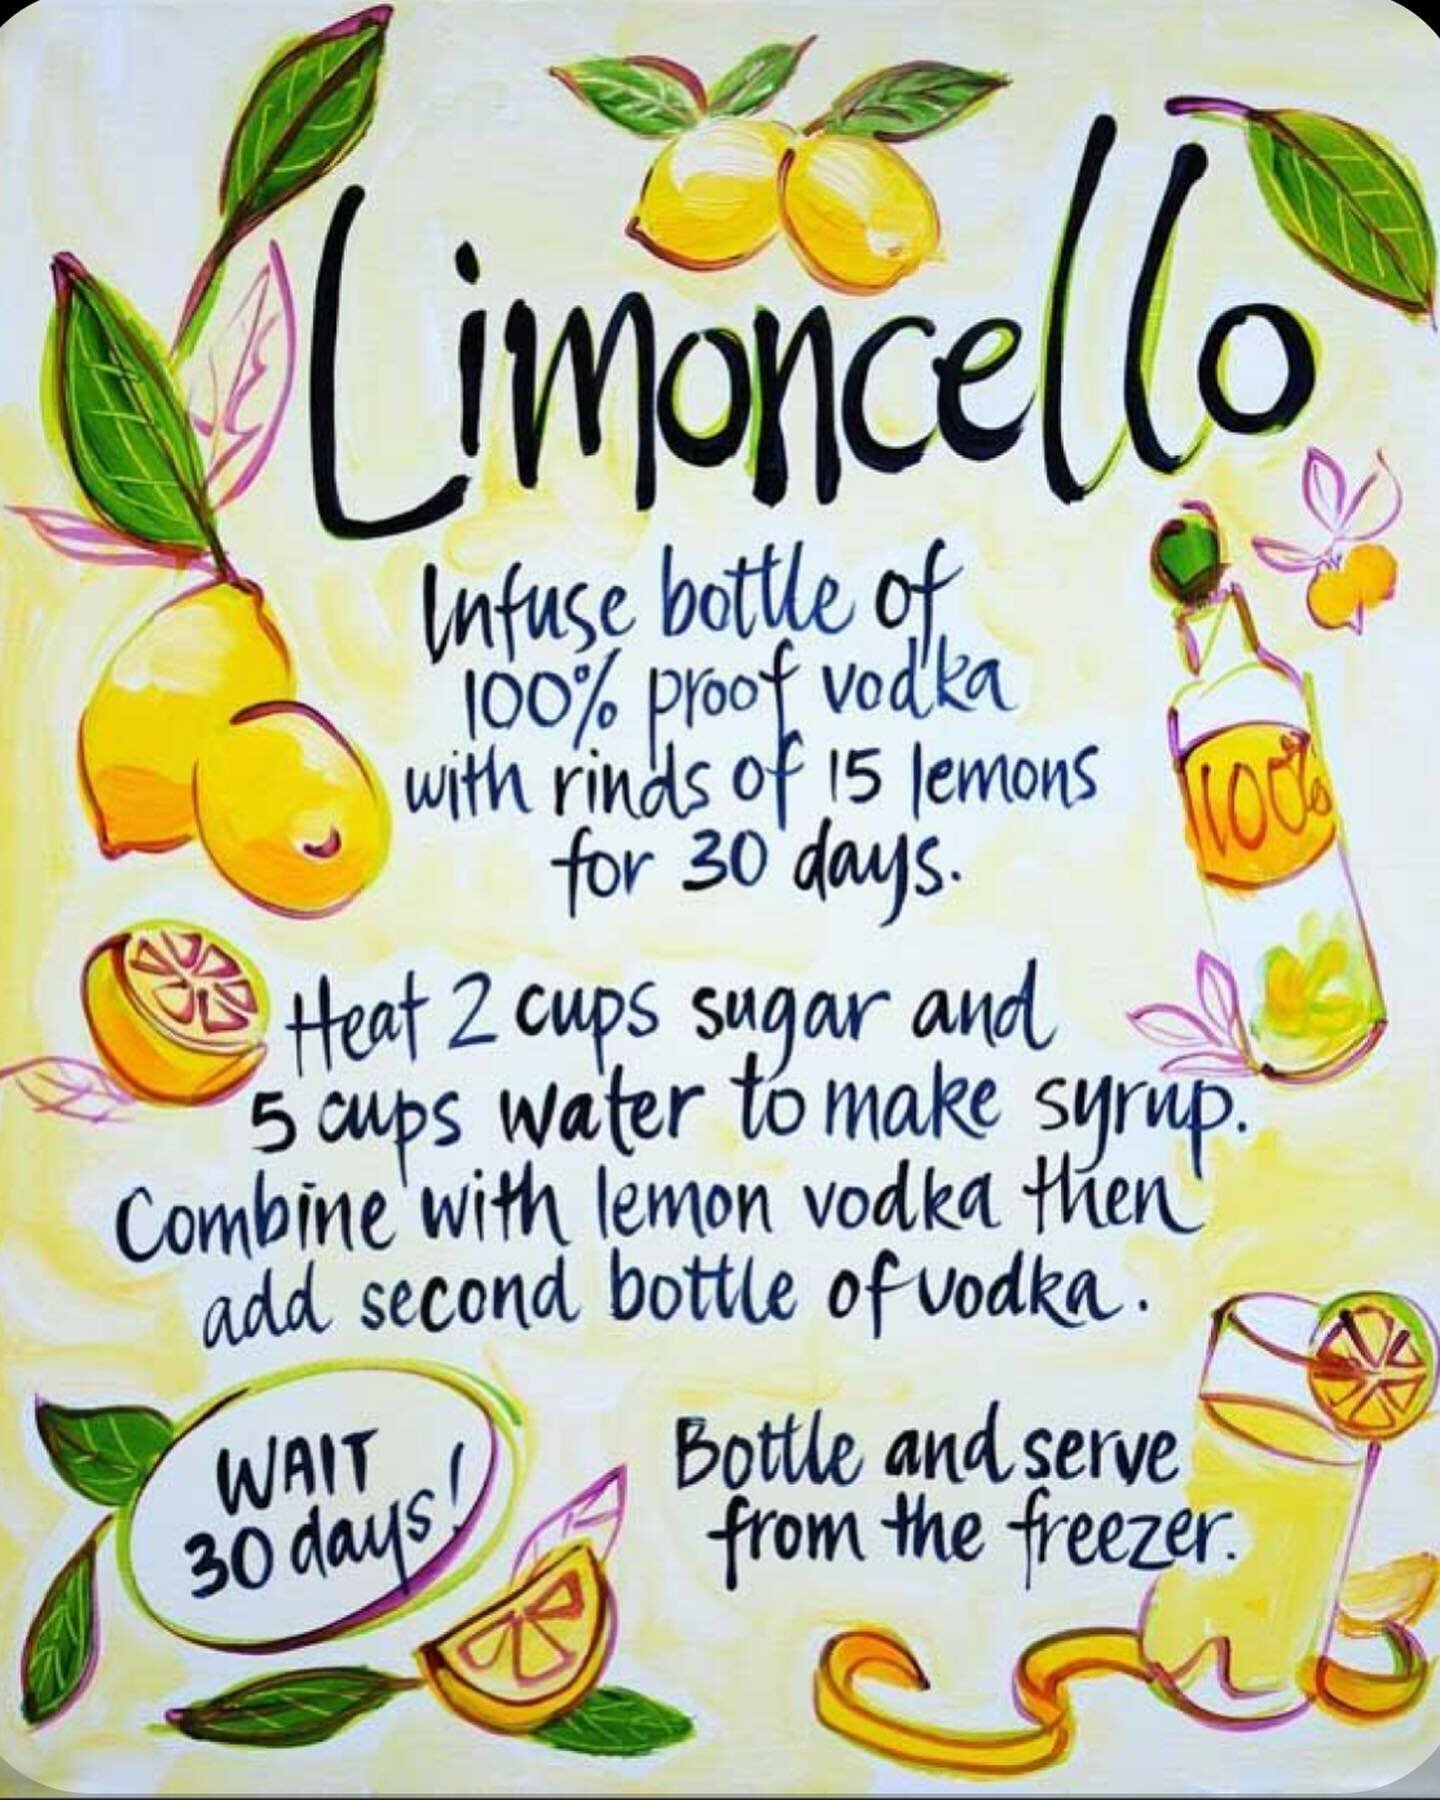 Limoncello
Infuse bottle of
100% proof vodka
with rinds of 15 lemons
for 30 days.
100%
Heat 2 cups sugar and
5 cups water to make syrup.
Combine with lemon vodka then
add second bottle of vodka.
WAIT
30 days!
Bottle and serve
from the freezer.